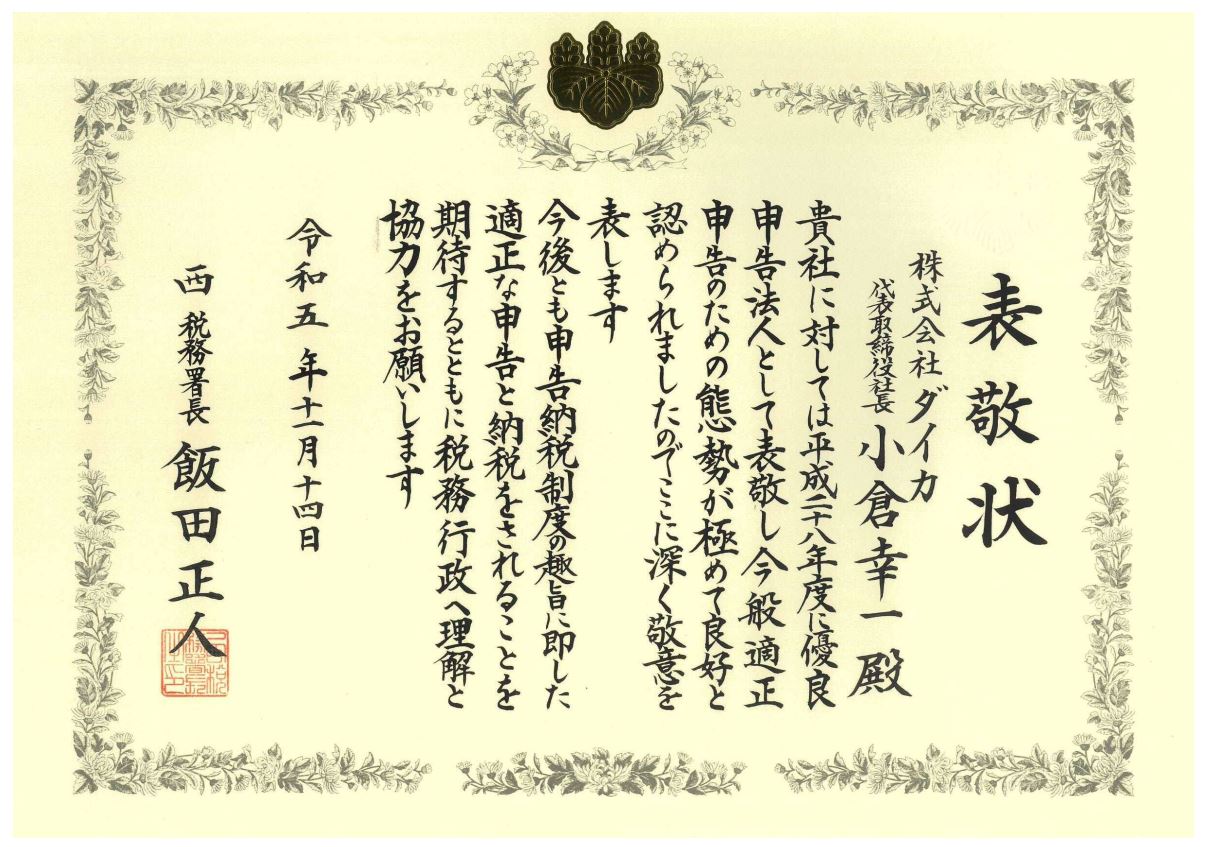 表敬状
株式会社ダイカ
代表取締役社長 小倉幸一 殿
貴社に対しては平成二十八年度に優良
申告法人として表敬し今般適正
申告のための態勢が極めて良好と
認められましたのでここに深く敬意を
表します
今後とも申告納税制度の趣旨に即した
適正な申告と納税をされることを
期待するとともに税務行政へ理解と
協力をお願いします
令和五年十一月十四日
西税務署長 飯田正人